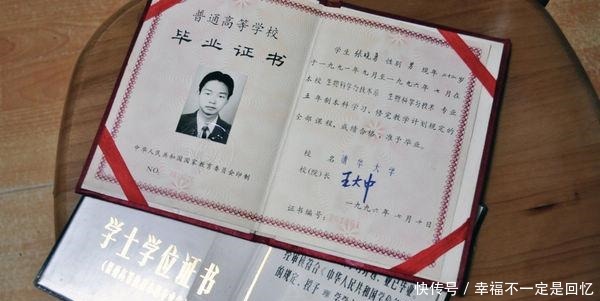 普通高等学校
毕业证书
中华人民共和国国家教育委员会印制
NO.
学生 张晓勇 性别 男 现年 二十三岁
于一九九一年九月至一九九六年七月在
本校 生物科学与技术系 生物科学与技术 专业
五年制本科学习,修完教学计划规定的
全部课程,成绩合格,准予毕业。
校 名 清华大学
校(院)长 王大中
一九九六年七月十日
证书编号:
学士学位证书
快传号 / 幸福不一定是回忆